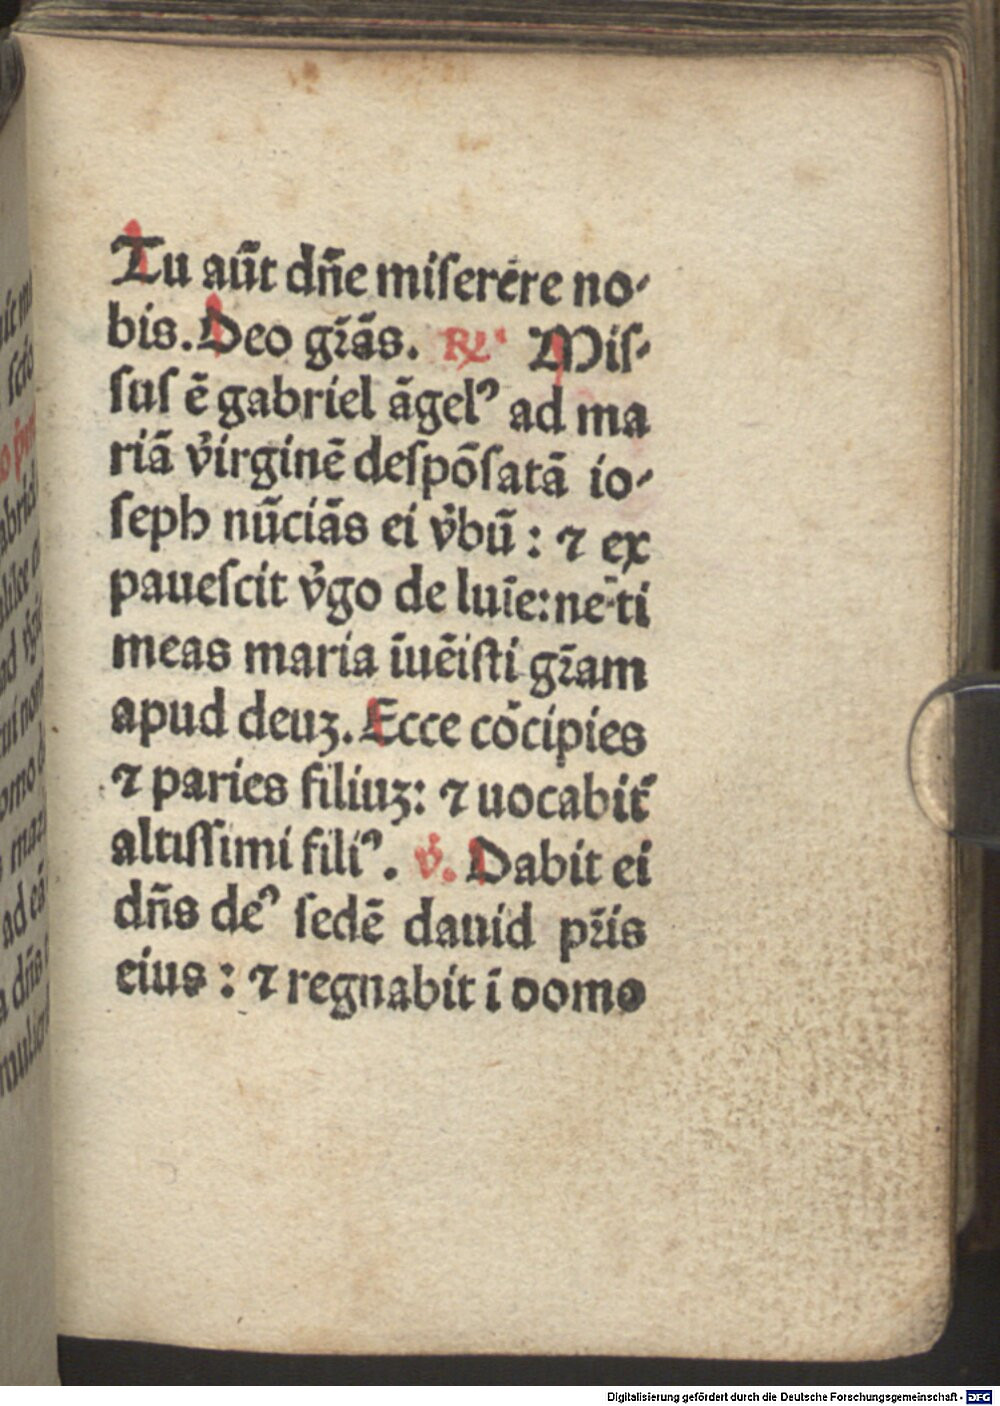 Tu aũt dñe miſerẽre no-
bis. Deo gr̃ãs. ℟. Miſ-
ſuſ ẽ gabriel ãgelꝰ ad ma
riã v̓irginẽ deſpõſatã io-
ſeph nũciãs ei v̓bũ : ⁊ ex
paueſcit v̓go de luı̃e: ne ti
meas maria ı̃uẽiſti gr̃am
apud deuꝫ. Ecce cõcipies
⁊ paries filiuꝫ: ⁊ uocabit᷑
altiſſimi filiꝰ. ℣. Dabit ei
dñs deꝰ ſedẽ dauid pr̃is
eius : ⁊ regnabit ı̃ domo
Digitalisierung gefördert durch die Deutsche Forschungsgemeinschaft - DFG